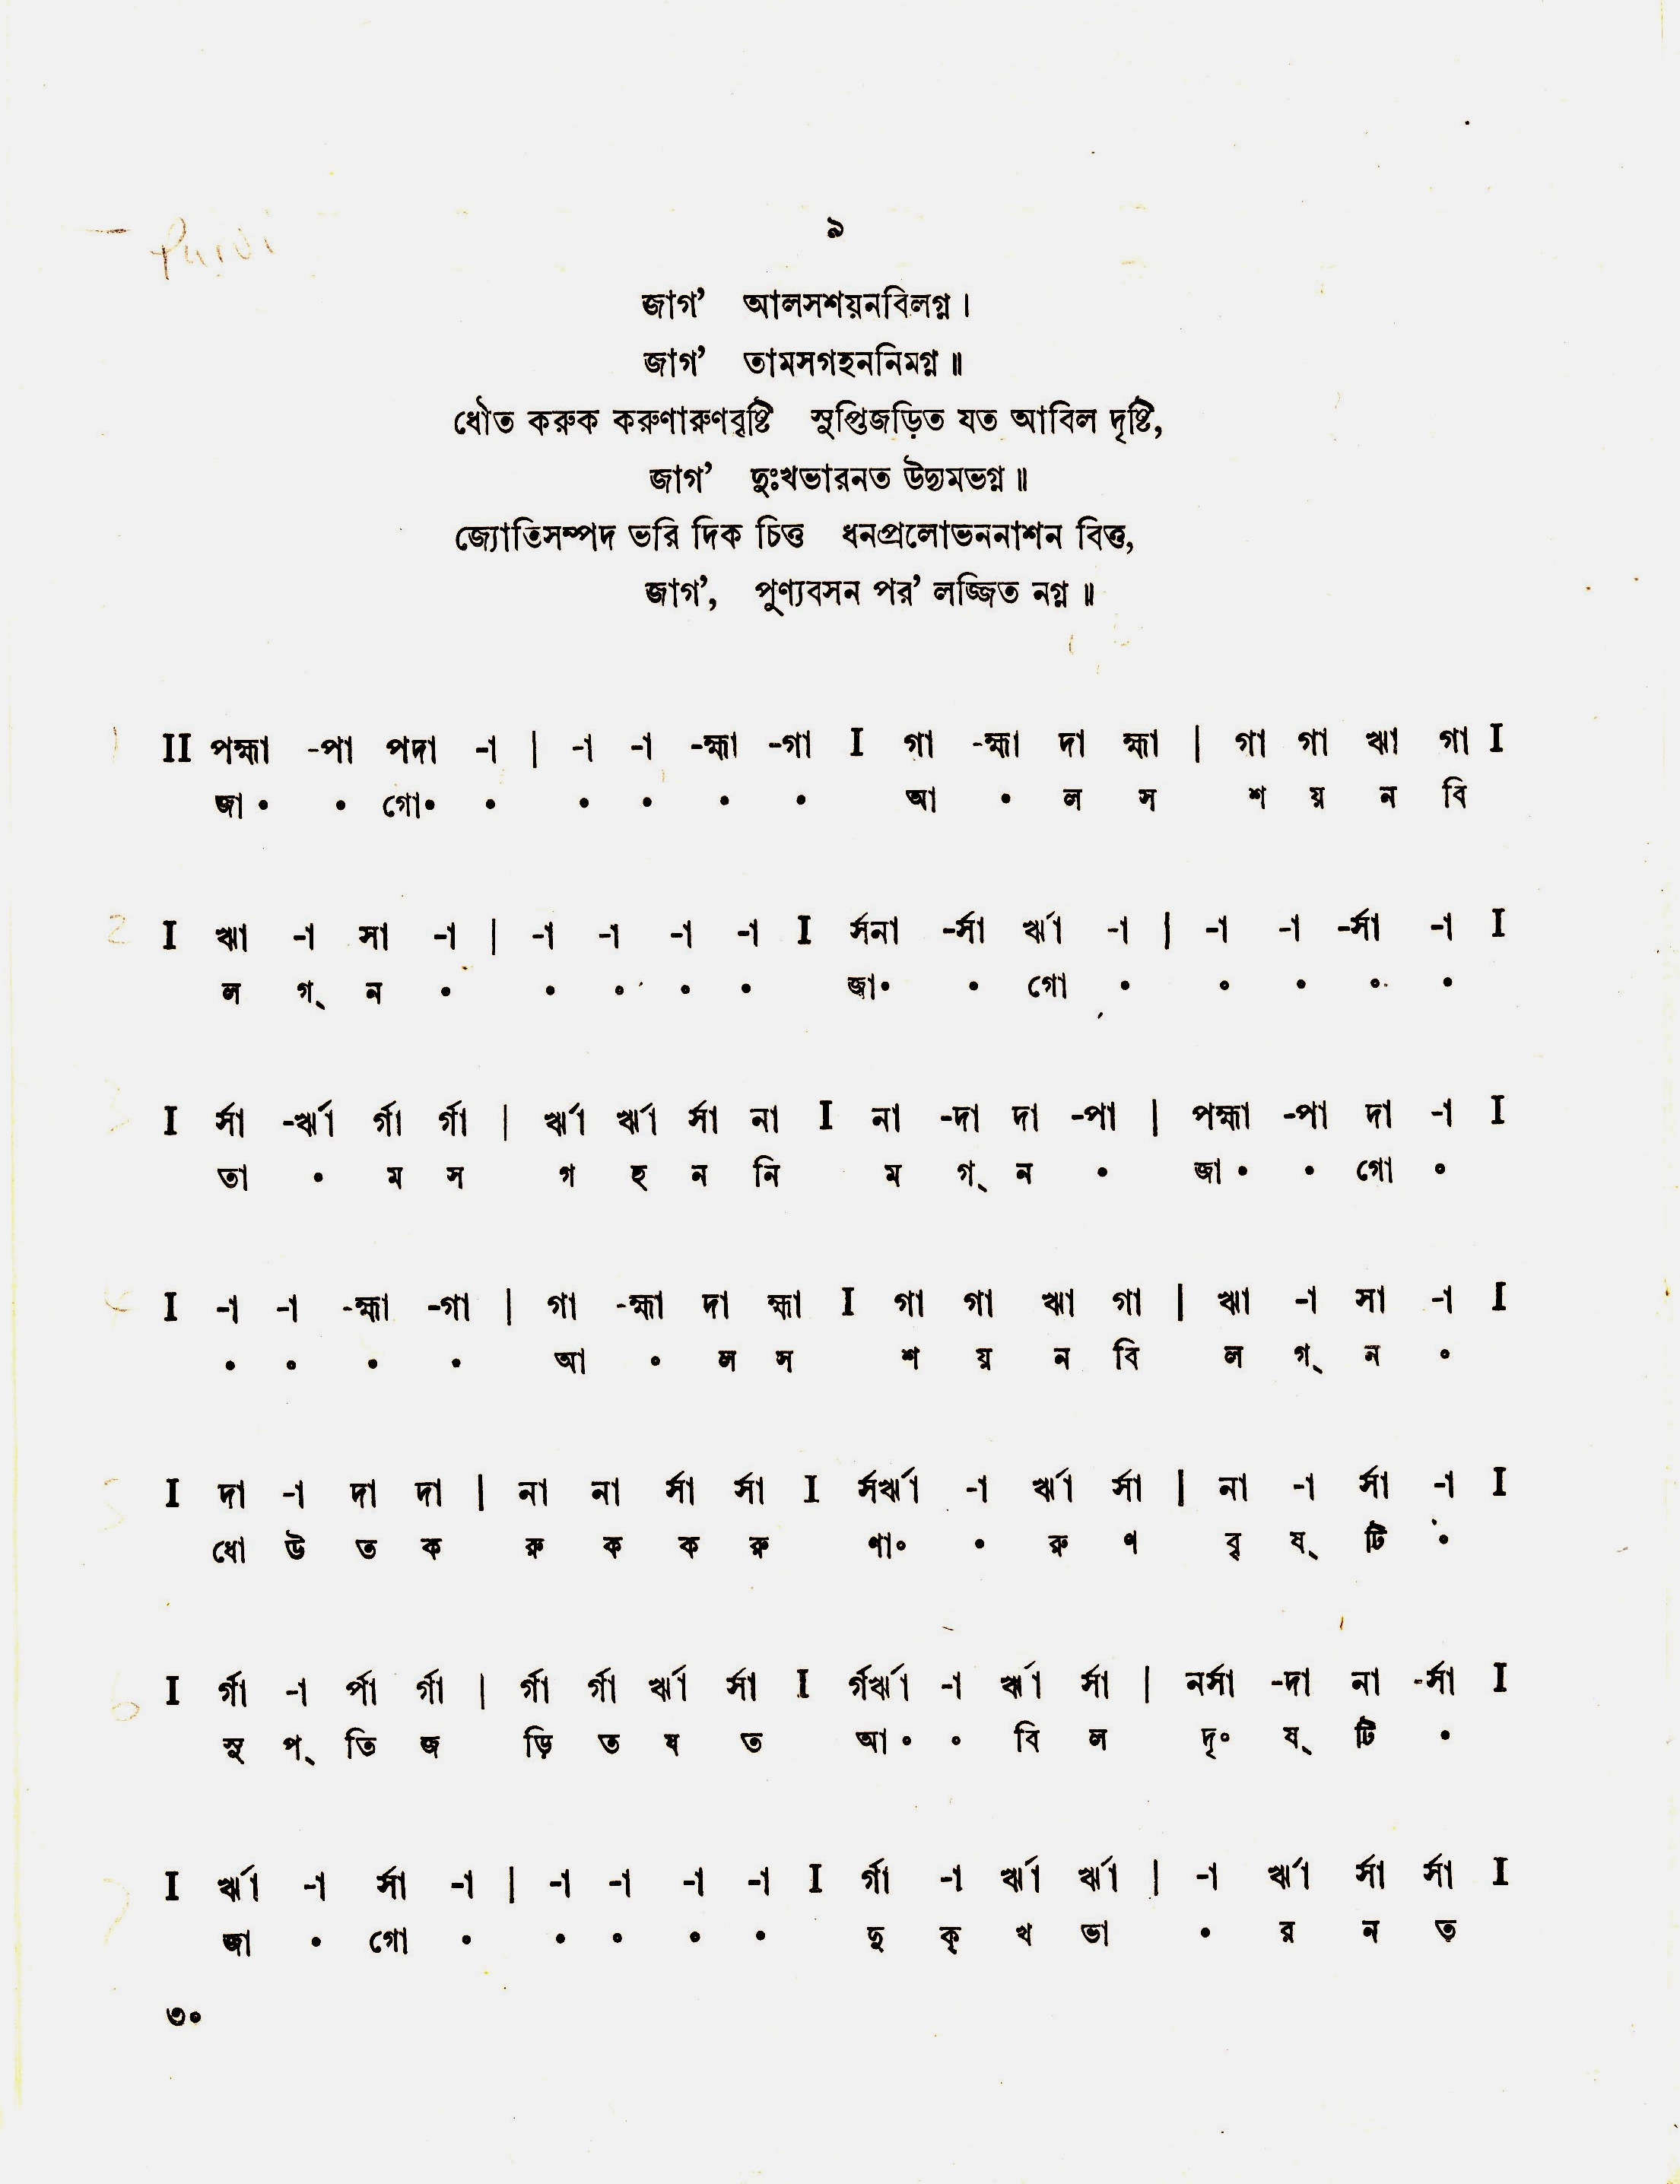 ৯
Purvi
জাগ’ আলসশয়নবিলগ্ন।
জাগ’ তামসগহননিমগ্ন॥
ধৌত করুক করুণারুণবৃষ্টি সুপ্তিজড়িত যত আবিল দৃষ্টি,
জাগ’ দুঃখভারনত উদ্যমভগ্ন॥
জ্যোতিসম্পদ ভরি দিক চিত্ত ধনপ্রলোভননাশন বিত্ত,
জাগ’, পুণ্যবসন পর’ লজ্জিত নগ্ন॥
1 II পহ্মা -পা পদা -া | -া -া -হ্মা -গা I গা -হ্মা দা হ্মা | গা গা ঋা গা I
জা॰ ॰ গো॰ ॰ ॰ ॰ ॰ ॰ আ ॰ ল স শ য় ন বি
2 I ঋা -া সা -া | -া -া -া -া I র্সনা -র্সা র্ঋা -া | -া -া -র্সা -া I
ল গ্ ন ॰ ॰ ॰ ॰ ॰ জা॰ ॰ গো ॰ ॰ ॰ ॰ ॰
3 I র্সা -র্ঋা র্গা র্গা | র্ঋা র্ঋা র্সা না I না -দা দা -পা | পহ্মা -পা দা -া I
তা ॰ ম স গ হ ন নি ম গ্ ন ॰ জা॰ ॰ গো ॰
4 I -া -া -হ্মা -গা | গা -হ্মা দা হ্মা I গা গা ঋা গা | ঋা -া সা -া I
॰ ॰ ॰ ॰ আ ॰ ল স শ য় ন বি ল গ্ ন ॰
5 I দা -া দা দা | না না র্সা র্সা I র্সর্ঋা -া র্ঋা র্সা | না -া র্সা -া I
ধো উ ত ক রু ক ক রু ণা॰ ॰ রু ণ বৃ ষ্ টি ॰
6 I র্গা -া র্পা র্গা | র্গা র্গা র্ঋা র্সা I র্গর্ঋা -া র্ঋা র্সা | নর্সা -দা না -র্সা I
সু প্ তি জ ড়ি ত য ত আ॰ ॰ বি ল দৃ॰ ষ্ টি ॰
7 I র্ঋা -া র্সা -া | -া -া -া -া I র্গা -া র্ঋা র্ঋা | -া র্ঋা র্সা র্সা I
জা ॰ গো ॰ ॰ ॰ ॰ ॰ দু ক্ খ ভা ॰ র ন ত
৩০